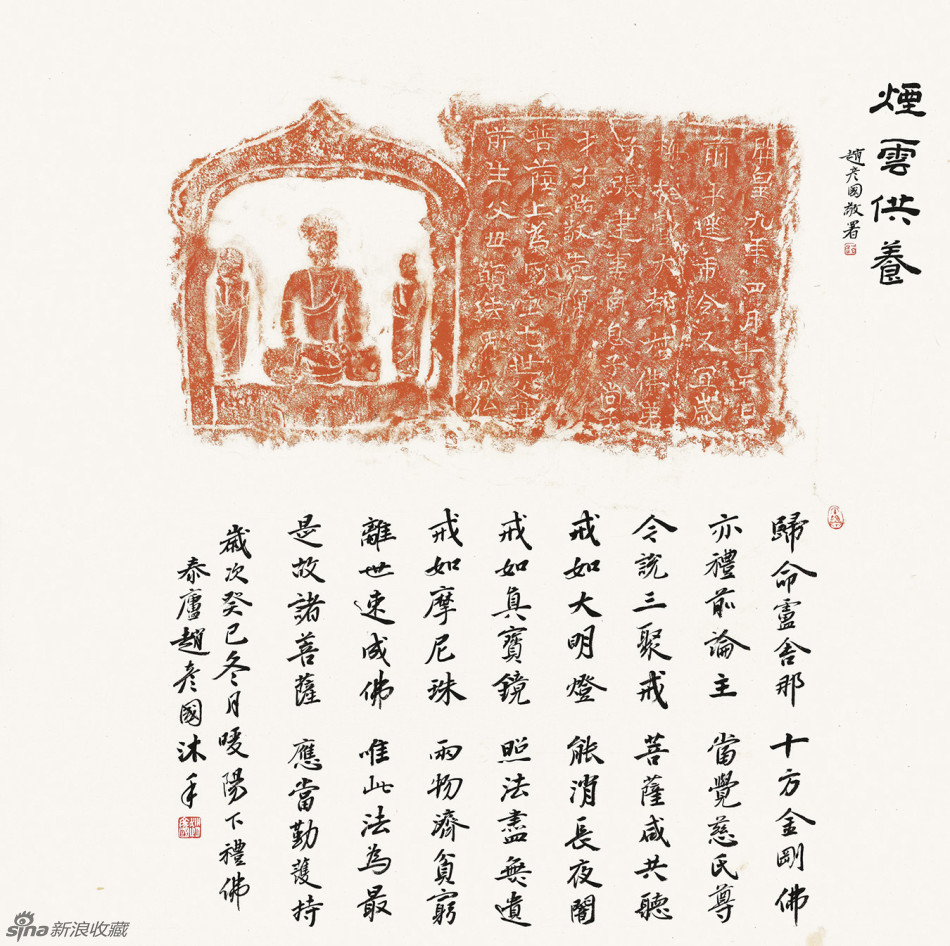 煙雲供養
趙彦國敬署
開皇九年四月十五日
前平遥
令
張建
子
敬造
菩薩上為
七世父母
前生父母願法界
歸命盧舍那 十方金剛佛
亦禮前論主 當覺慈氏尊
今說三聚戒 菩薩咸共聽
戒如大明燈 能消長夜闇
戒如真寶鏡 照法盡無遺
戒如摩尼珠 雨物濟貧窮
離世速成佛 唯此法為最
是故諸菩薩 應當勤護持
歲次癸巳冬月暖陽下禮佛
泰廬趙彦國沐手
sina新浪收藏